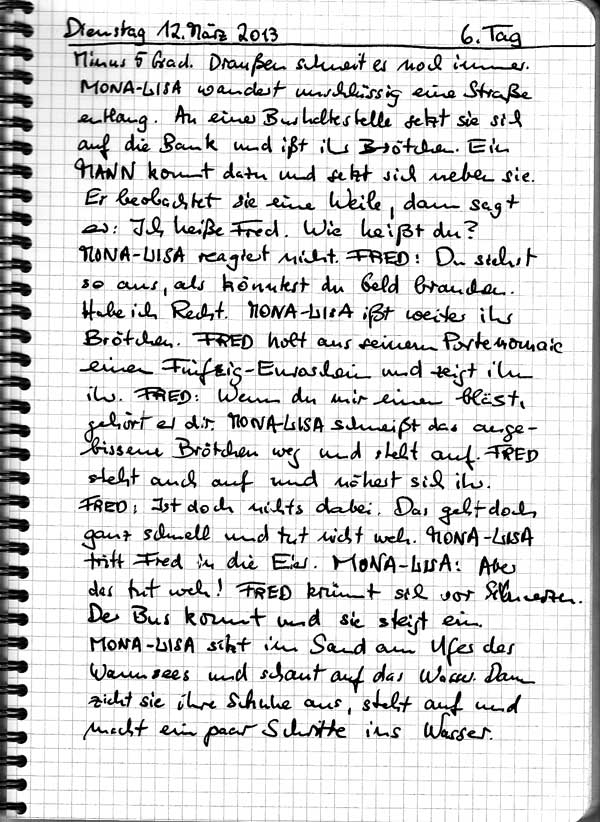 Dienstag 12. März 2013 6. Tag
Minus 5 Grad. Draußen schneit es noch immer.
MONA-LISA wandert unschlüssig eine Straße
entlang. An einer Bushaltestelle setzt sie sich
auf die Bank und ißt ihr Brötchen. Ein
MANN kommt dazu und setzt sich neben sie.
Er beobachtet sie eine Weile, dann sagt
er: Ich heiße Fred. Wie heißt du?
MONA-LISA reagiert nicht. FRED: Du siehst
so aus, als könntest du Geld brauchen.
Habe ich Recht. MONA-LISA ißt weiter ihr
Brötchen. FRED holt aus seinem Portemonaie
einen Fünfzig-Euroschein und zeigt ihn
ihr. FRED: Wenn du mir einen bläst,
gehört er dir. MONA-LISA schmeißt das ange-
bissene Brötchen weg und steht auf. FRED
steht auch auf und nähert sich ihr.
FRED: Ist doch nichts dabei. Das geht doch
ganz schnell und tut nicht weh. MONA-LISA
tritt Fred in die Eier. MONA-LISA: Aber
das tut weh! FRED krümmt sich vor Schmerzen.
Der Bus kommt und sie steigt ein.
MONA-LISA sitzt im Sand am Ufer des
Wannsees und schaut auf das Wasser. Dann
zieht sie ihre Schuhe aus, steht auf und
macht ein paar Schritte ins Wasser.